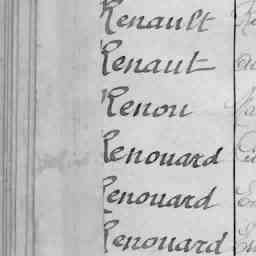 Renault
Renaut
Renou
Renouard
Renouard
Renouard